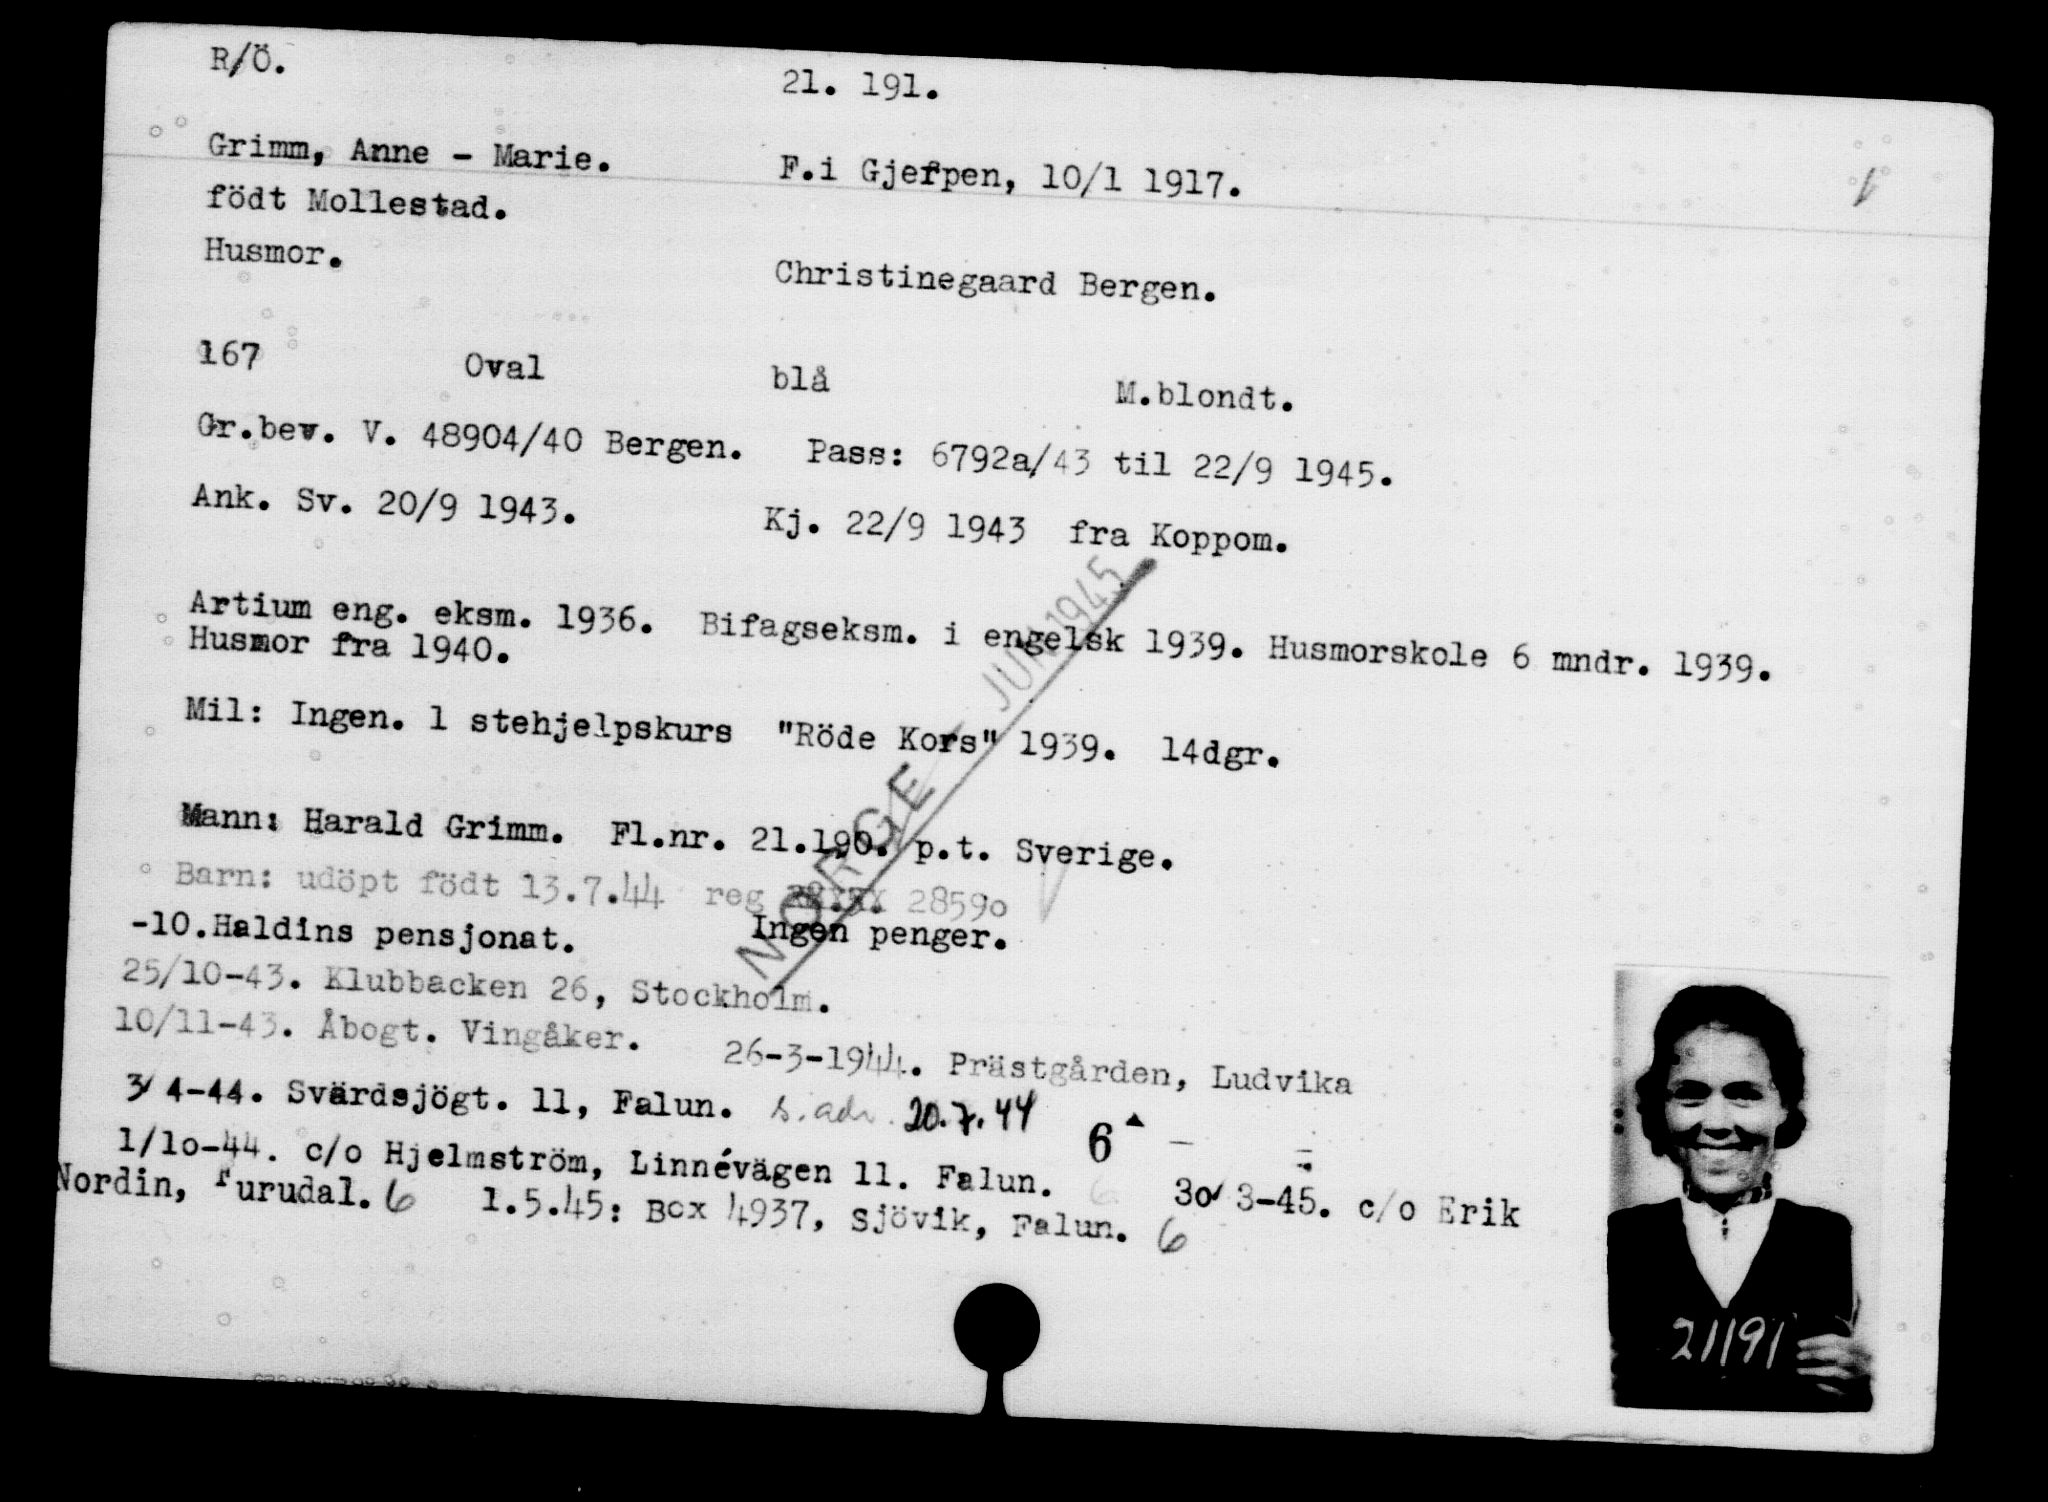 R/Ö.
21. 191.
Grimm, Anne - Marie.
F.i Gjerpen, 10/1 1917.
födt Mollestad.
Husmor.
Christinegaard Bergen.
167 Oval blå M.blondt.
Gr.bev. V. 48904/40 Bergen. Pass: 6792a/43 til 22/9 1945.
Ank. Sv. 20/9 1943. Kj. 22/9 1943 fra Koppom.
Artium eng. eksm. 1936. Bifagseksm. i engelsk 1939. Husmorskole 6 mndr. 1939.
Husmor fra 1940.
Mil: Ingen. 1 stehjelpskurs "Röde Kors" 1939. 14dgr.
Mann: Harald Grimm. Fl.nr. 21.190. p.t. Sverige.
Barn: udöpt födt 13.7.44 reg 28590
-10.Haldins pensjonat. Ingen penger.
25/10-43. Klubbacken 26, Stockholm.
10/11-43. Åbogt. Vingåker. 26-3-1944. Prästgården, Ludvika
3/4-44. Svärdsjögt. 11, Falun. s. adr. 20.7.44
6
1/10-44. c/o Hjelmström, Linnévägen 11. Falun. 30/3-45. c/o Erik
Nordin, Furudal. 6 1.5.45: Box 4937, Sjövik, Falun. 6
NORGE JUN 1945
21191